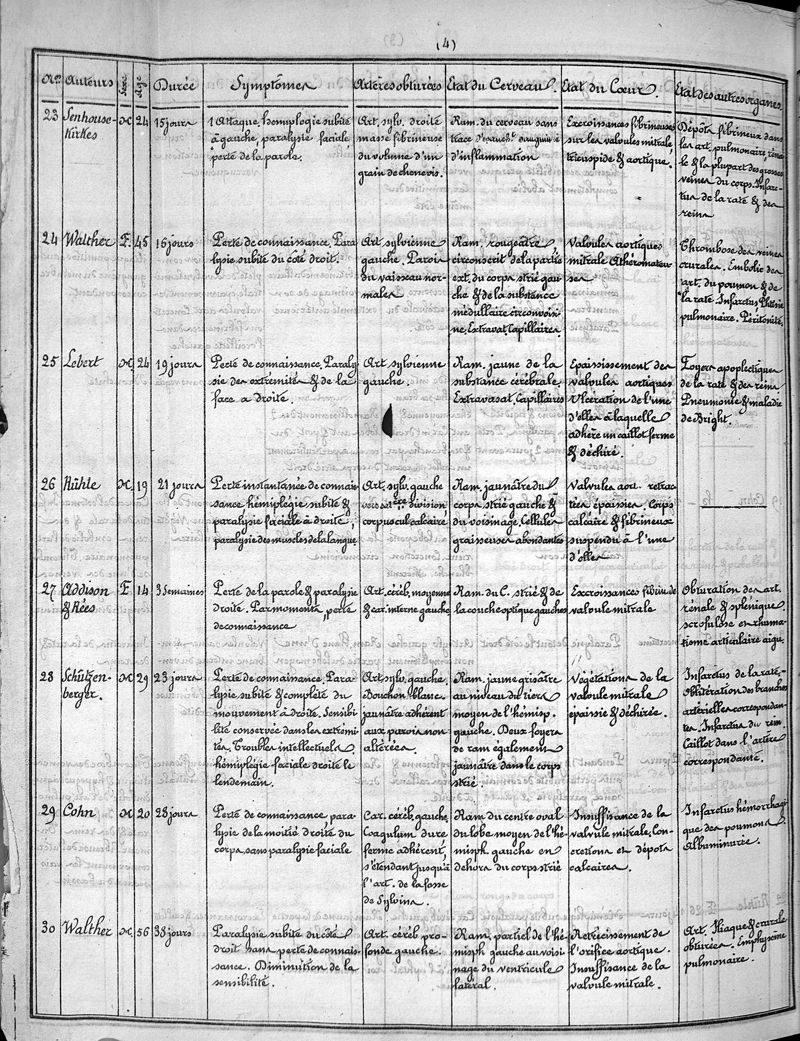 (4)
Nos Auteurs Sexe Age Durée Symptômes Artères oblurées Etat du Cerveau. Etat du Cœur. Etat des autres organes.
23 Senhouse-
Kirkes
24 15 jours
1 Attaque, hémiplégie subite
à gauche, paralysie faciale,
perte de la parole.
Art. sylv. droite
masse fibrineuse
du volume d'un
grain de chenevis.
Ram. du cerveau sans
trace
d'inflammation
Excroissances fibrineuses
sur les valvules mitrale,
tricuspide & aortique.
Dépôts fibrineux dans
les art. pulmonaire, réna-
le & la plupart des grosses
veines du corps. Infarc-
tus de la rate & des
reins
24 Walther F. 45 16 jours
Perte de connaissance, Para-
lysie subite du côté droit.
Art. sylvienne
gauche. Parois
du vaisseau nor-
males
Ram. rougeâtre,
circonscrit de la partie
ext. du corps strié gau-
che & de la substance
médullaire circonvoisi-
ne. Extravat. Capillaires.
Valvules aortiques
mitrale Athéromateu-
ses
Thrombose des veines
crurales. Embolie des
art. du poumon & de
la rate. Infarctus
pulmonaire. Péritonite.
25 Lebert 24 19 jours
Perte de connaissance. Paraly-
sie des extremités & de la
face a droite.
Art. sylvienne
gauche.
Ram. jaune de la
substance cérébrale.
Extravasat. Capillaires
Epaississement des
valvules aortiques
Ulcération de l'une
d'elles à laquelle
adhère un caillot ferme
& déchiré.
Foyers apoplectiques
de la rate & des reins
Pneumonie & maladie
de Bright.
26 Rühle 19 21 jours
Perte instantanée de connais-
sance hémiplégie subite &
paralysie faciale à droite,
paralysie des muscles de la langue
Art. sylv. gauche
vers sa 1ère division
corpuscul. calcaire.
Ram. jaunâtre du
corps strié gauche &
du voisinage. Cellules
graisseuses abondantes
Valvules aor. retrac-
tées épaissies. Corps
calcaire & fibrineux
suspendu à l'une
d'elles
27 Addison
& Rées
F. 14 3 semaines
Perte de la parole & paralysie
droite. Par moments, perte
de connaissance
Art. céréb. moyenne
& car. interne gauche
Ram. du C. strié & de
la couche optique gauches
Excroissances fibrin. de
valvule mitrale
Obturation des art.
rénale & splénique.
scrofulose
tisme articulaire aigu.
28 Schützen-
berger.
29 23 jours
Perte de connaissance. Para-
lysie subite & complète du
mouvement à droite. Sensibi-
lité conservée dans les extremi-
tés. Troubles intellectuels,
hémiplégie faciale droite le
lendemain.
Art. sylv. gauche,
Bouchon blanc
jaunâtre adhérent
aux parois non
altérées.
Ram. jaune grisâtre
au niveau du tiers
moyen de l'hémisp.
gauche. Deux foyers
de ram. également
jaunâtre dans le corps
strié.
Végétations de la
valvule mitrale
épaissie & déchirée.
Infarctus de la rate,
Oblitération des branches
artérielles correspondan-
tes. Infarctus du rein.
Caillot dans l'artère
correspondante.
29 Cohn 20 28 jours
Perte de connaissance, para-
lysie de la moitié droite du
corps, sans paralysie faciale
Car. céréb. gauche,
Coagulum dure
ferme adhérent,
s'étendant jusqu'à
l'art. de la fosse
de Sylvius.
Ram. du centre oval
du lobe moyen de l'hé-
misph. gauche en
dehors du corps strié
Insuffisance de la
valvule mitrale, Con-
cretions et dépôts
calcaires.
Infarctus hémorrhagi-
que des poumons
Albuminurée.
30 Walther 56 38 jours
Paralysie subite du côté
droit sans perte de connais-
sance. Diminution de la
sensibilité.
Art. céréb. pro-
fonde gauche.
Ram. partiel de l'hé-
misph. gauche au voisi-
nage du ventricule
latéral.
Retrécissement de
l'orifice aortique.
Insuffisance de la
valvule mitrale.
Art. Iliaque & crurale
obturées. Emphysème
pulmonaire.